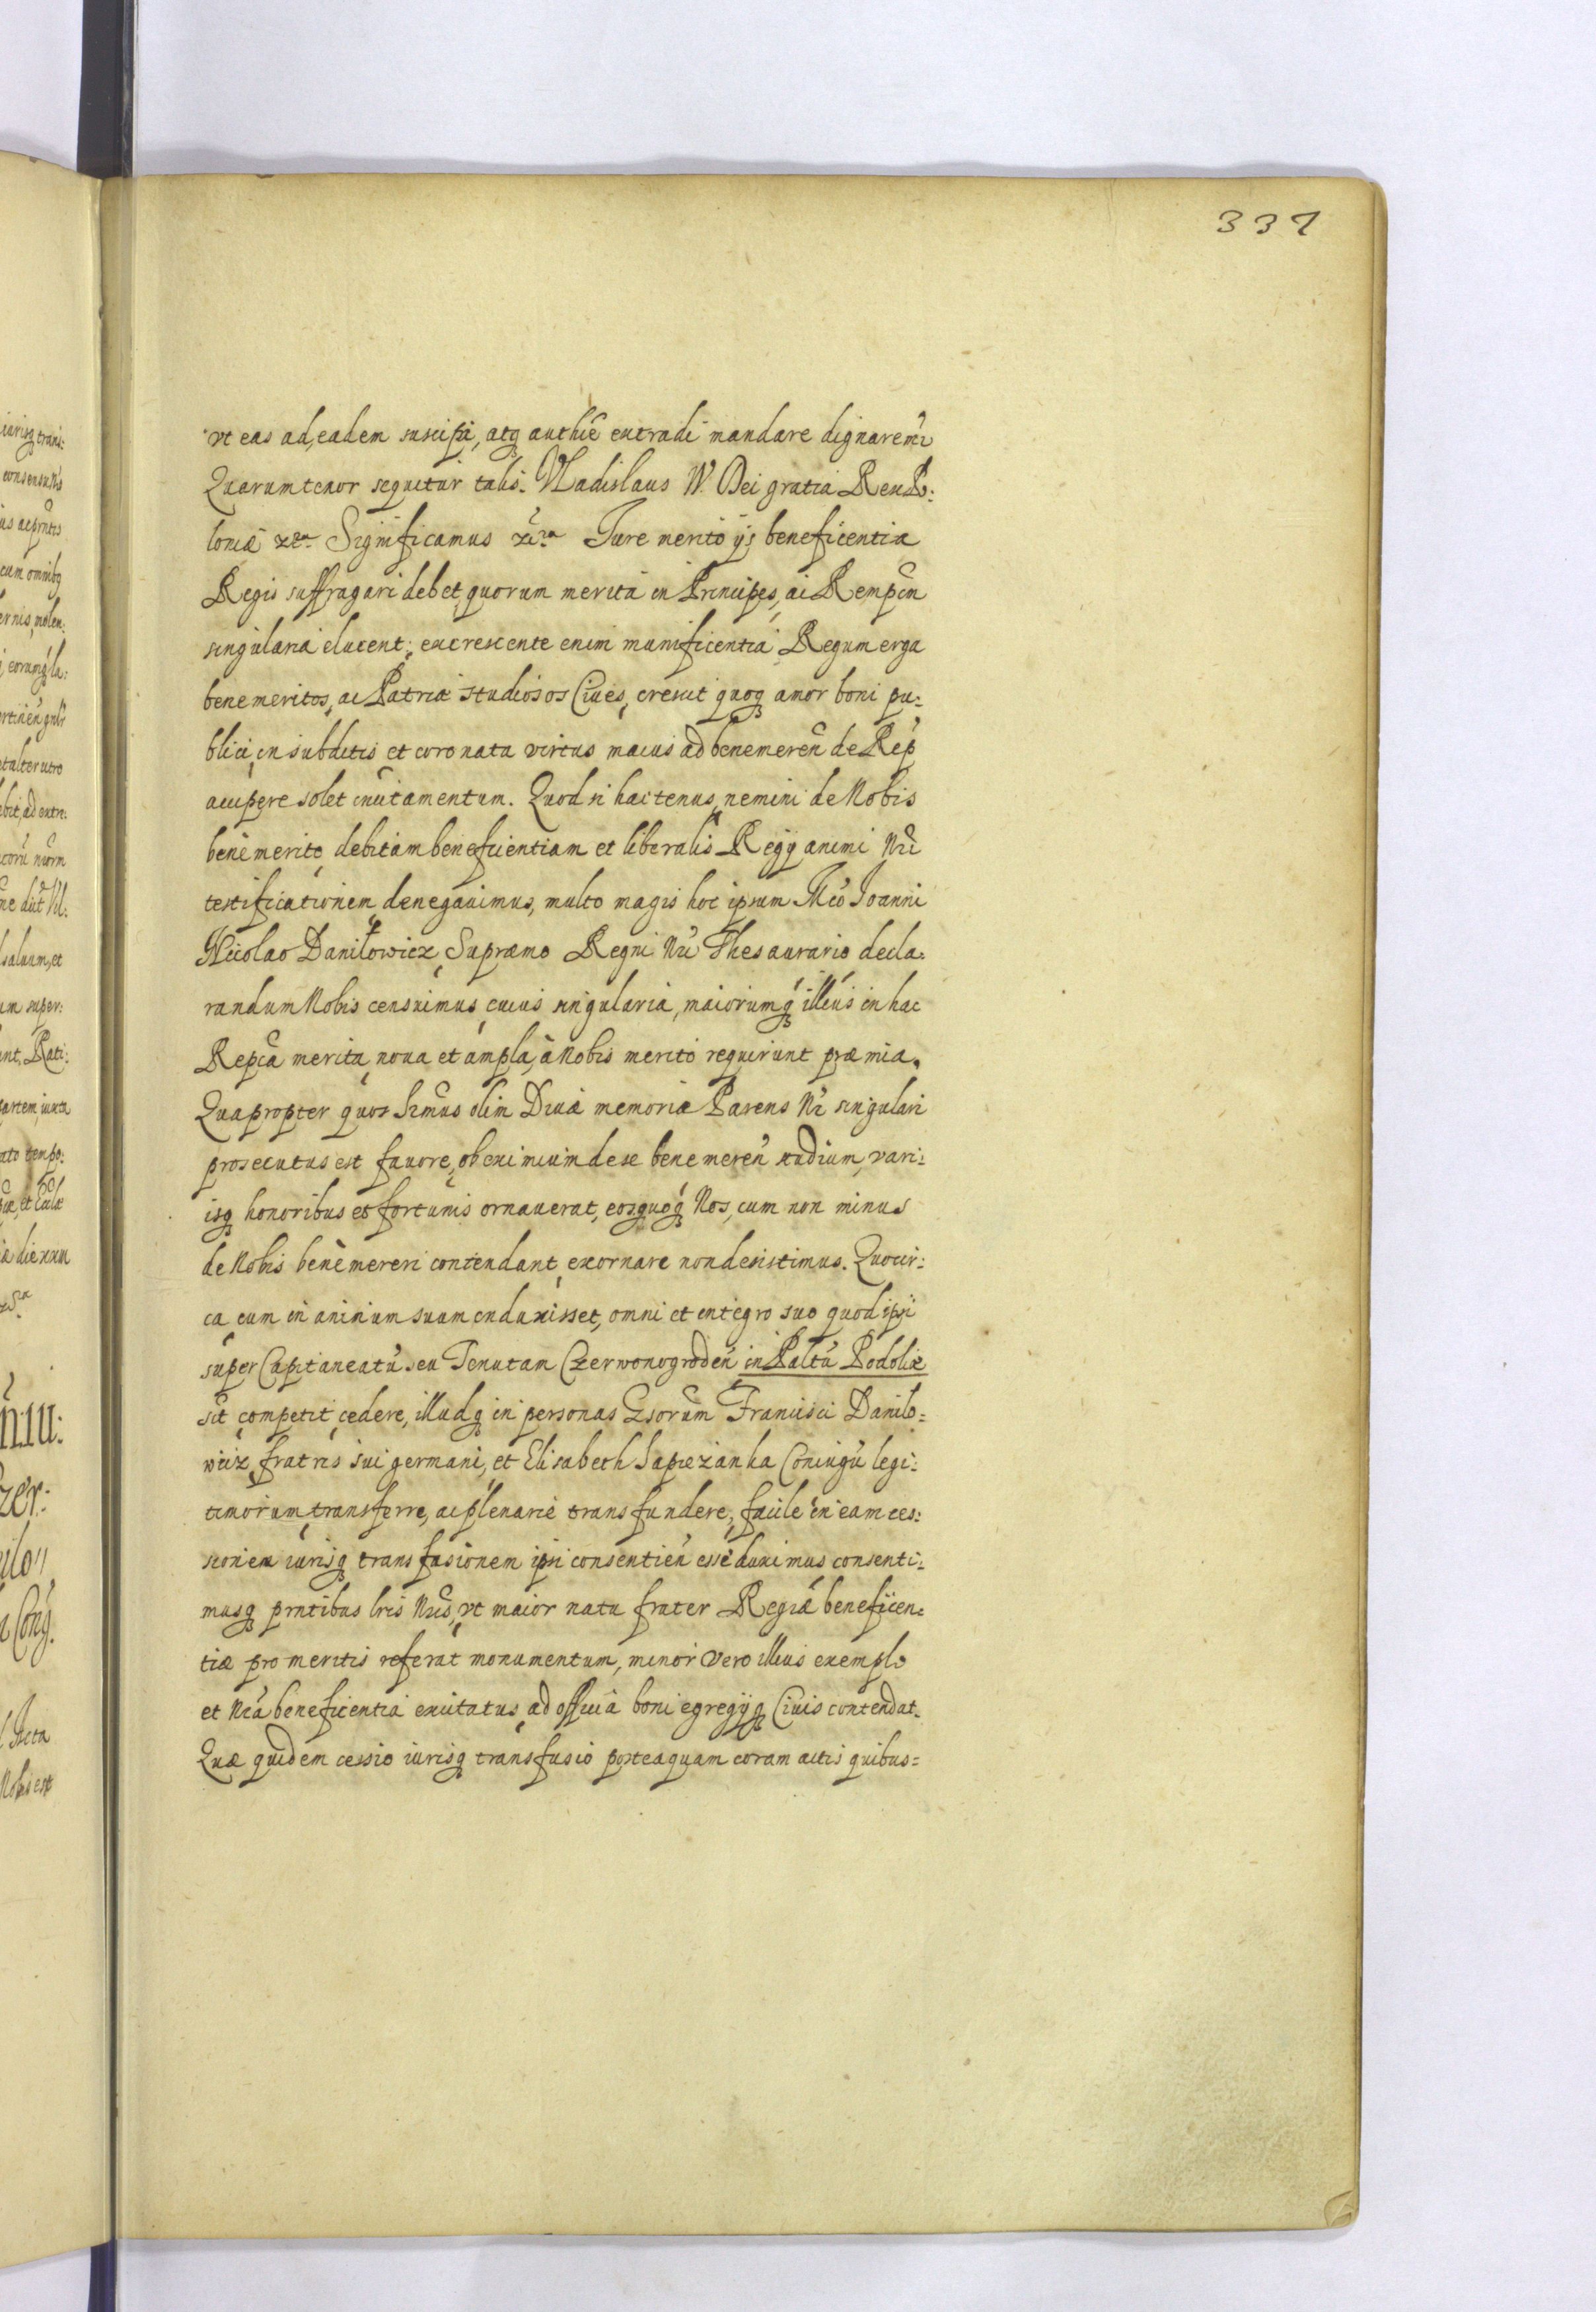 337
vt eas ad eadem suscipi, atq authĕ extradi mandare dignaremr
Quarum tenor sequitur talis. Vladislaus IV. Dei gratia Rex Po:
loniæ etc. Significamus etc. Iure merito ijs beneficentia
Regis suffragari debet, quorum merita in Principes, ac Rempcn
singularia elucent; excrescente enim munificentia Regum erga
benemeritos, ac Patriæ studiosos Ciues, crescit quoq amor boni pu:
blici, in subditis et coronata virtus maius ad benemeren de Rep
accipere solet inuitamentum. Quod si hactenus, nemini de Nobis
benè merito, debitam beneficientiam et liberalis Regij animi Nri
testificationem, denegauimus, multo magis hoc ipsum Mco Ioanni
Nicolao Daniłowicz, Supræmo Regni Nri Thesaurario decla:
randum Nobis censuimus, cuius singularia, maiorumq illius in hac
Repca merita, noua et ampla, à Nobis merito requirunt præmia.
Quapropter quos Srmus olim Diuæ memoriæ Parens Nr singulari
prosecutus est fauore, ob eximium de se bene meren studium, vari:
isq honoribus et fortunis ornauerat, eosquoq Nos, cum non minus
de Nobis benè mereri contendant, exornare non desistimus. Quocir:
ca cum in animum suum induxisset, omni et integro suo quod ipsi
super Capitaneatu seu Tenutam Czerwonogroden in Paltu Podoliæ
sit competit, cedere, illudq in personas Gsorum Francisci Danilo:
wicz, fratris sui germani, et Elisabeth Sapiezanka Coniugu legi:
timorum, transferre, ac plenariè transfundere, facile in eam ces:
sionem iurisq transfusionem ipsi consentien esse duximus, consenti:
musq prntibus lris Nris, vt maior natu frater Regiæ beneficen:
tiæ pro meritis referat monumentum, minor vero illius exemplo
et Nra beneficentia excitatus, ad officia boni egregijq Ciuis contendat.
Quæ quidem cessio iurisq transfusio posteaquam coram actis quibus=